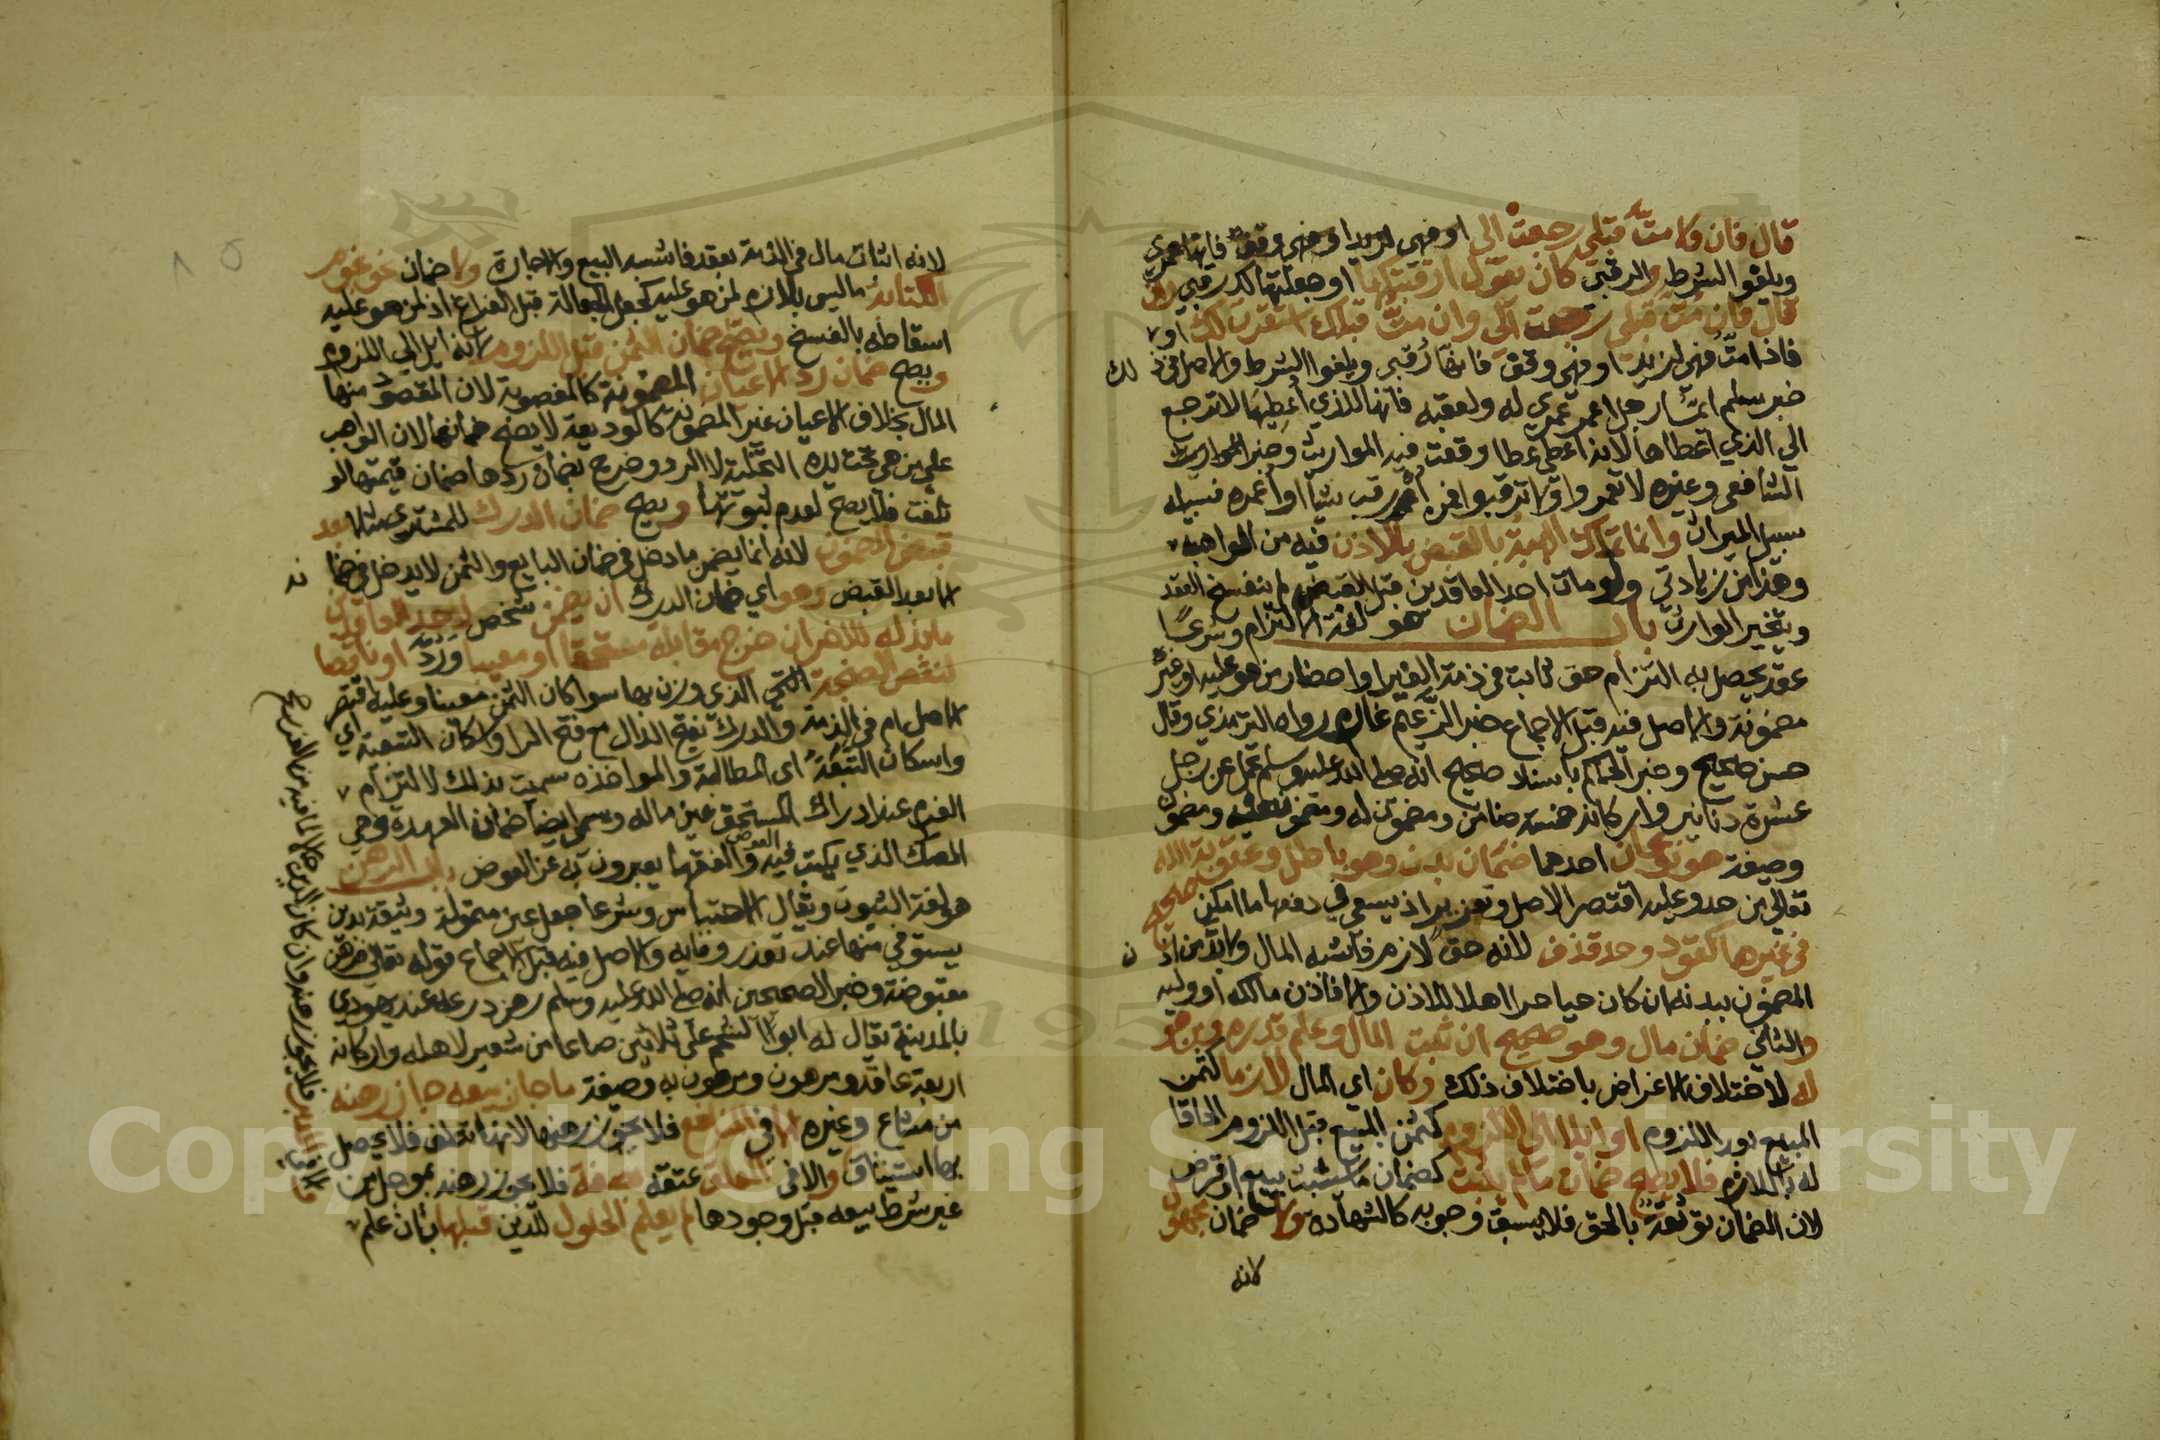 قال فان ولا متّ قبلي رجعت الي او فهي لزيد او فهي وقف فانها عمري
ويلغو الشرط والرقبي كان يقول ارقبتكها او جعلتها لك رقبي
قال فان مت قبلي رجعت الي وان متُّ قبلك استقرت لك او
فاذا متّ فهي لزيد او فهي وقف فانها رُقبي ويلغوا الشرط والاصل في ذ لك
خبر مسلم ايما رجل اعمر عمري له ولعقبه فانها للذي أعطيها لا ترجع
الي الذي اعطاها لانه اعطي عطا وقعت فيه المواريث وخبر
الشافعي وغيره لا تعمروا ولا ترقبوا فمن أرقب شيأ او أعمره فسبيله
سبيل الميراث وانما تملك الهبة بالقبض بالاذن فيه من الواهب
وهذا من زيادتي ولو مات احد العاقدين قبل القبض لم ينفسخ العقد
ويتخير الوارث باب الضمان هو لغة الالتزام وشرعًا
عقد يحصل به التزام حق ثابت في ذمة الغير او احضار من هو عليه او عين
مضمونة والاصل فيه قبل الاجماع خبر الزعيم غارم رواه الترمذي وقال
حسن صحيح وخبر الحاكم باسناد صحيح انه صلي الله عليه وسلم تحمل عن رجل
عشرة دنانير واركانه خمسة ضامن ومضمون له ومضمون عنه ومضمون
وصيغة هو نوعان احدهما ضمان بدن وهو باطل في عقوبة الله
تعالي من حد وعليه اقتصر الاصل وتعزير اذ يسعي في دفعها ما امكن صحيح
في غيرها كقود وحد قذف لانه حق لازم فاشبه المال ولا بد من اذ ن
المضمون ببدنه ان كان حيا حرا اهلا للاذن والا فاذن مالكه او وليه
والثاني ضمان مال وهو صحيح ان ثبت المال وعلم قدره ومن هو
له لاختلاف الاغراض باختلاف ذلك وكان اي المال لازما كثمن
المبيع بعد اللزوم او ايلا الي اللزوم كثمن المبيع قبل اللزوم الحاقا
له باللازم فلا يصح ضمان ما لم يثبت كضمان ما سيثبت ببيع او قرض
لان الضمان توثقة بالحق فلا يسبق وجوبه كالشهادة ولا ضمان مجهول
لانه
لانه اثبات مال في الذمة بعقد فاشبه البيع والاجارة ولا ضمان نحو نجوم
الكتابة ما ليس بلازم لمن هو عليه كجعل الجعالة قبل الفراغ اذ لمن هو عليه
اسقاطه بالفسخ ويصح ضمان الثمن قبل اللزوم لانه ايل الي اللزوم
ويصح ضمان رد الاعيان المضمونة كالمغصوبة لان المقصود منها
المال بخلاف الاعيان غير المضمونة كالوديعة لا يصح ضمانها لان الواجب
علي من هي تحت يده التخلية لا الرد وخرج بضمان ردها ضمان قيمتها لو
تلفت فلا يصح لعدم ثبوتها ويصح ضمان الدرك للمشتري مثلا بعد
قبض المضمون لانه انما يضمن ما دخل في ضمان البايع والثمن لا يدخل في ضما نه
الا بعد القبض وهو اي ضمان الدرك ان يضمن شخص لاحد العاقدين
ما بذله للاخر ان خرج مقابله مستحقا او معيبا ورُدّ او ناقصا
لنقص الصنجة التي الذي وزن بها سوا كان الثمن معينا وعليه اقتصر
الاصل ام في الذمة والدرك بفتح الدال مع فتح الرا واسكان التبعة اي
واسكان التبعة اي المطالبة والمواخذه سميت بذلك لالتزام
الغرم عند ادراك المستحق عين ماله وسمي ايضا ضمان العهدة وهي
الصك الذي يكتب فيه العوض والفقها يعبرون به عن العوض باب الرهن
هو لغة الثبوت ويقال الاحتباس وشرعا جعل عين متمولة وثيقة بدين
يستوفي منها عند تعذر وفايه والاصل فيه قبل الاجماع قوله تعالي فرهن
مقبوضة وخبر الصحيحين انه صلي الله عليه وسلم رهن درعه عند يهودي
بالمدينة يقال له ابو الشحم علي ثلاثين صاعا من شعير لاهله واركانه
اربعة عاقد ومرهون ومرهون به وصيغة ما جاز بيعه جاز رهنه
من مشاع وغيره الا في المنافع فلا يجوز رهنها لانها تتلف فلا يحصل
بها استيثاق والا في المعلق عتقه بصفة فلا يجوز رهنه بموجل من
غير شرط بيعه قبل وجودها لم يعلم الحلول للدين قبلها بان علم